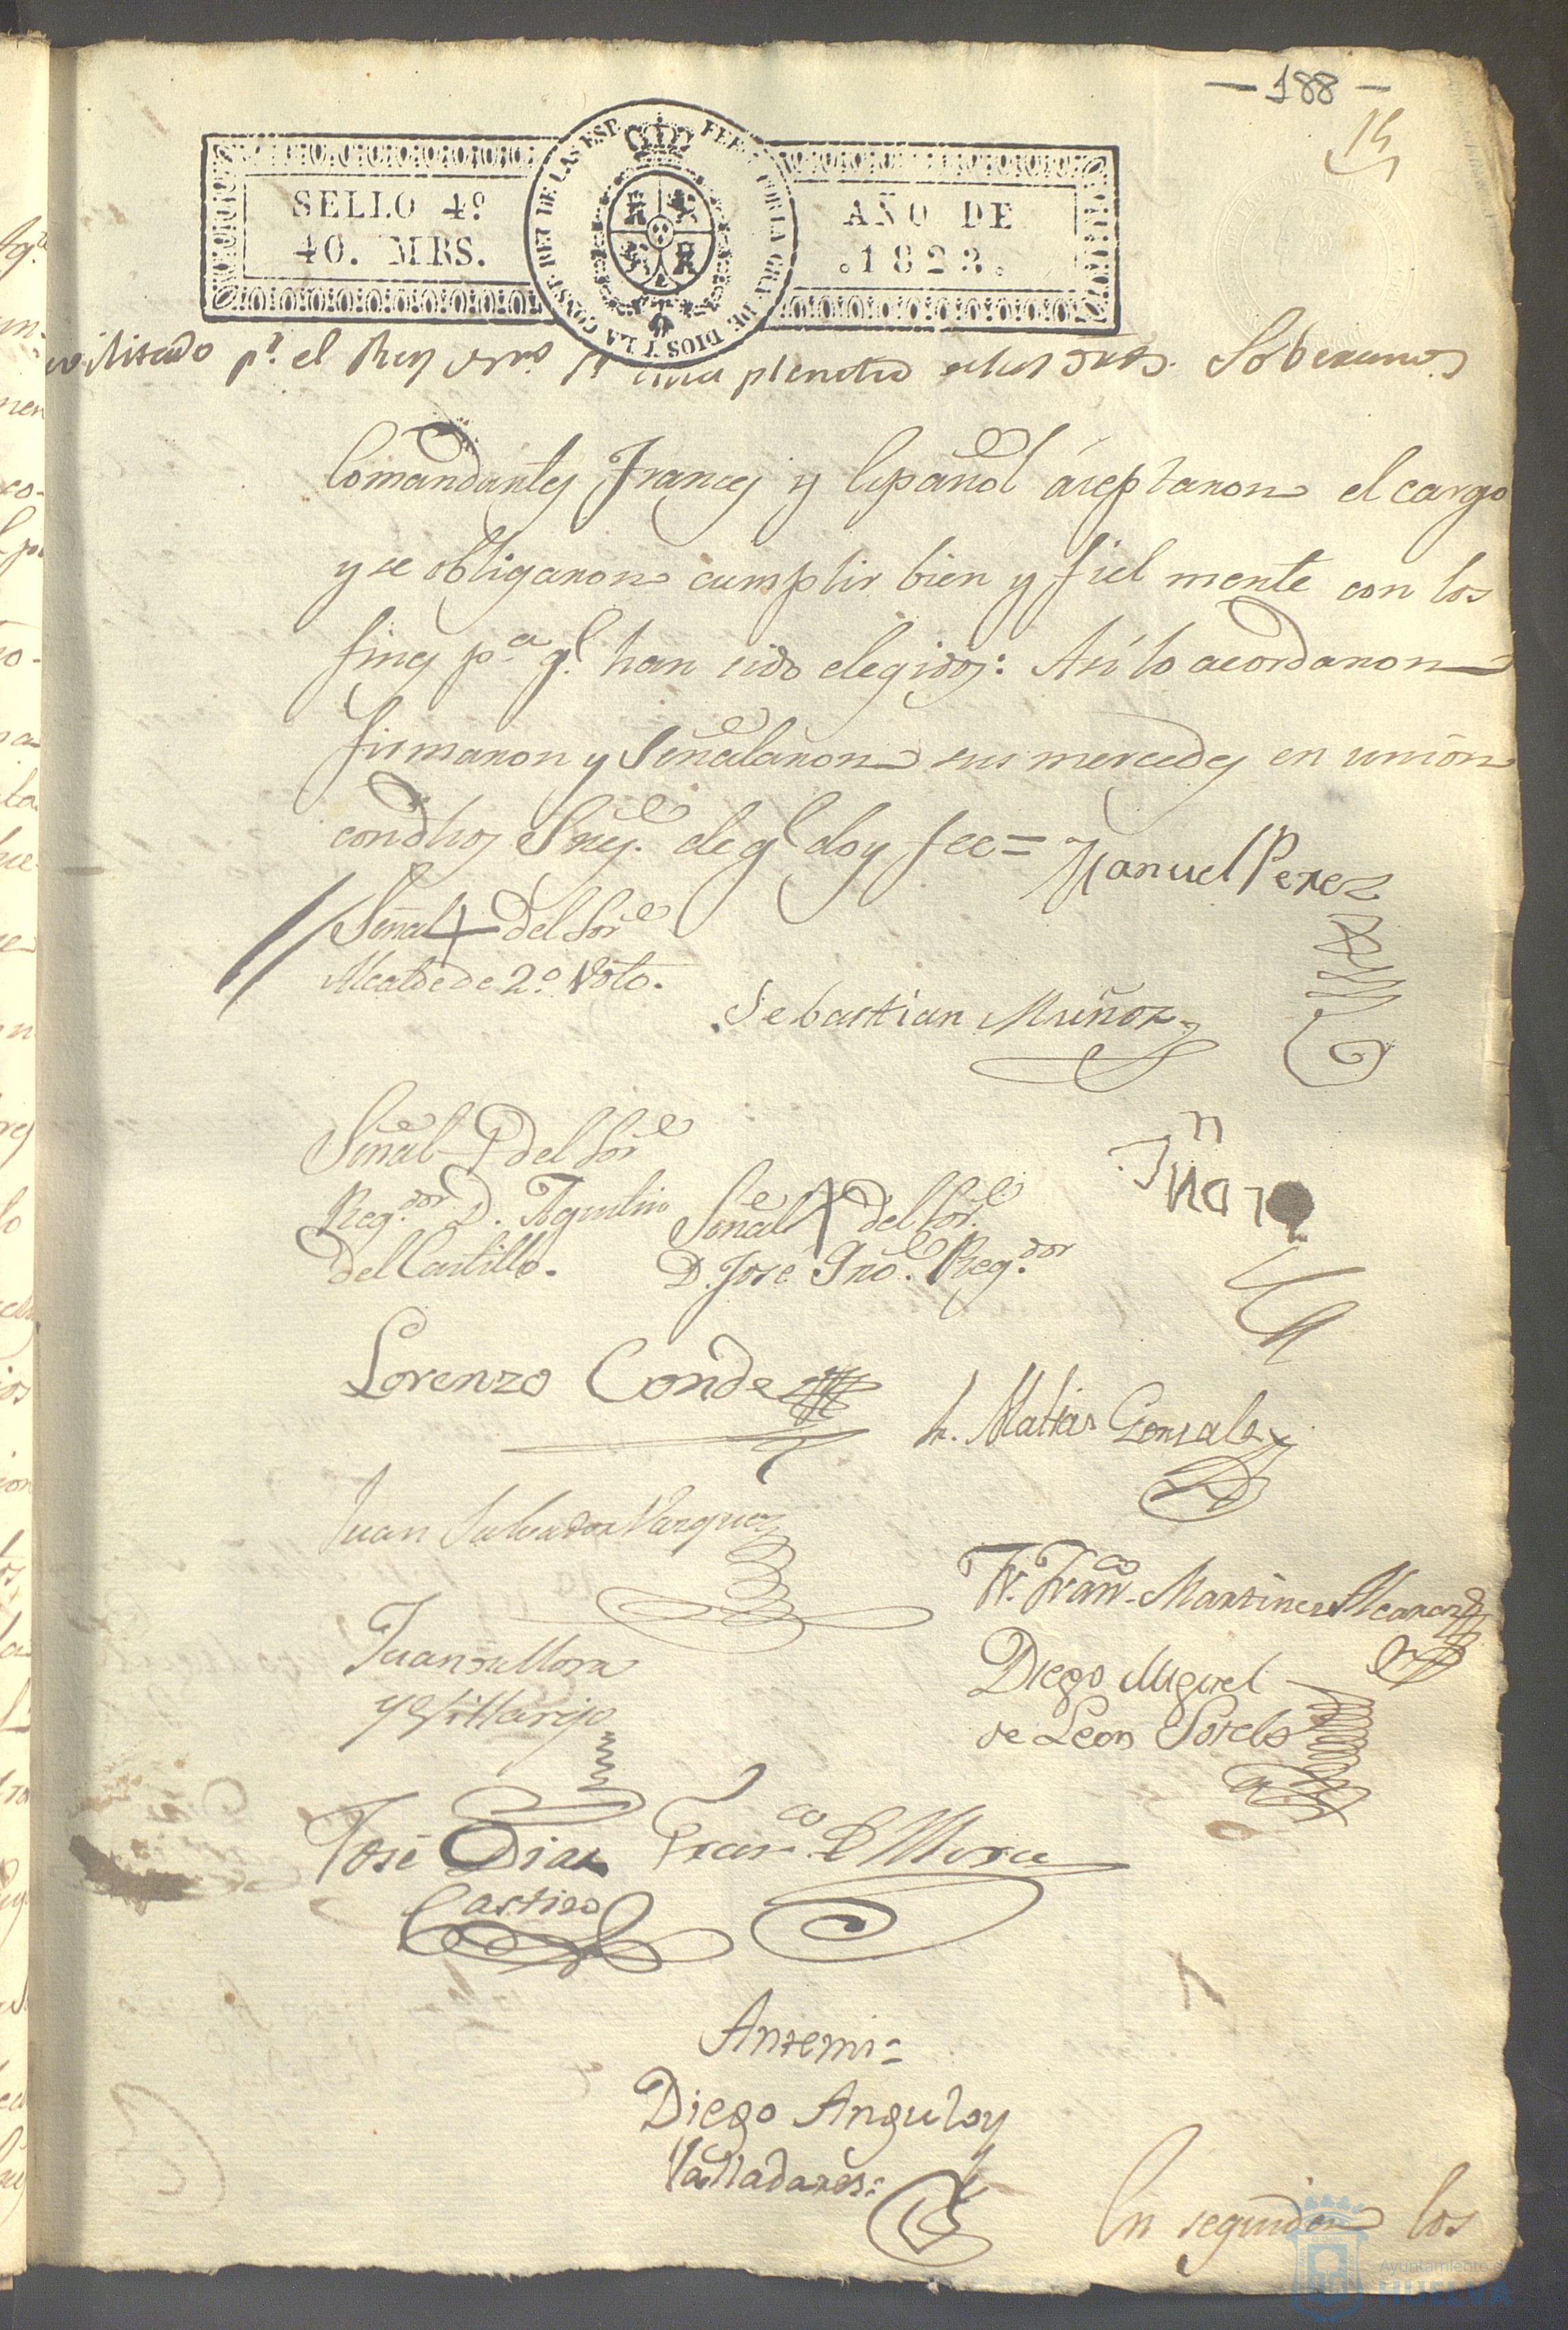 - 188 -
15
SELLO 4º
40. MRS.
AÑO DE
.1823.
DIOS Y LA CONST. REY DE LAS ESP.
el Rey nro Sr Soberanos
Comandantes Frances y Español áceptaron el cargo
y se obligaron cumplir bien y fiel mente con los
fines pª q.l han sido elegidos: Asi lo acordaron
firmaron y Señalaron sus mercedes en union
con dhos Sres. de q.l doy fee =
Manuel Perez
Señal + Del Sor
Alcalde de 2º Voto.
Sebastian Muñoz
Señal del Sor
Reg.dor D. Agustin
Del Castillo.
Señal + del Sor.
D. Jose Gno. Reg.dor
Lorenzo Conde
Fr. Matias Gonzalez
Juan Salvador Vazquez
Fr. Franco. Martinez Alcaraz
Juan de Mora
y Villarejo
Diego Miguel
de Leon Sotelo
José Diaz
Castizo
Franco. D Mora
Antemi =
Diego Angulo y
Valladares:
En seguida los
Ayuntamiento de
HUELVA